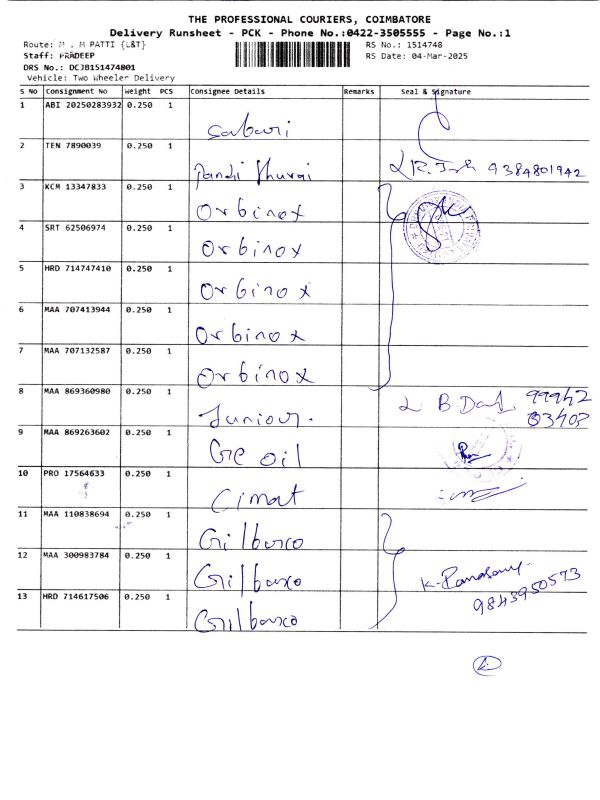 THE PROFESSIONAL COURIERS, COIMBATORE
Delivery Runsheet - PCK - Phone No.:0422-3505555 - Page No.:1
Route: M . M PATTI {L&T} RS No.: 1514748
Staff: PRADEEP RS Date: 04-Mar-2025
DRS No.: DCJB151474801
Vehicle: Two Wheeler Delivery
S NO Consignment No Weight PCS Consignee Details Remarks Seal & Signature
1 ABI 20250283932 0.250 1 Sabari
2 TEN 7890039 0.250 1 Pandi thurai 9384801942
3 KCM 13347833 0.250 1 Orbinox
4 SRT 62506974 0.250 1 Orbinox
5 HRD 714747410 0.250 1 Orbinox
6 MAA 707413944 0.250 1 Orbinox
7 MAA 707132587 0.250 1 Orbinox
8 MAA 869360980 0.250 1 Juniour. 99942 03408
9 MAA 869263602 0.250 1 Ge oil
10 PRO 17564633 0.250 1 Cimat
11 MAA 110838694 0.250 1 Gilbarco
12 MAA 300983784 0.250 1 Gilbarco
13 HRD 714617506 0.250 1 Gilbarco 9843950573